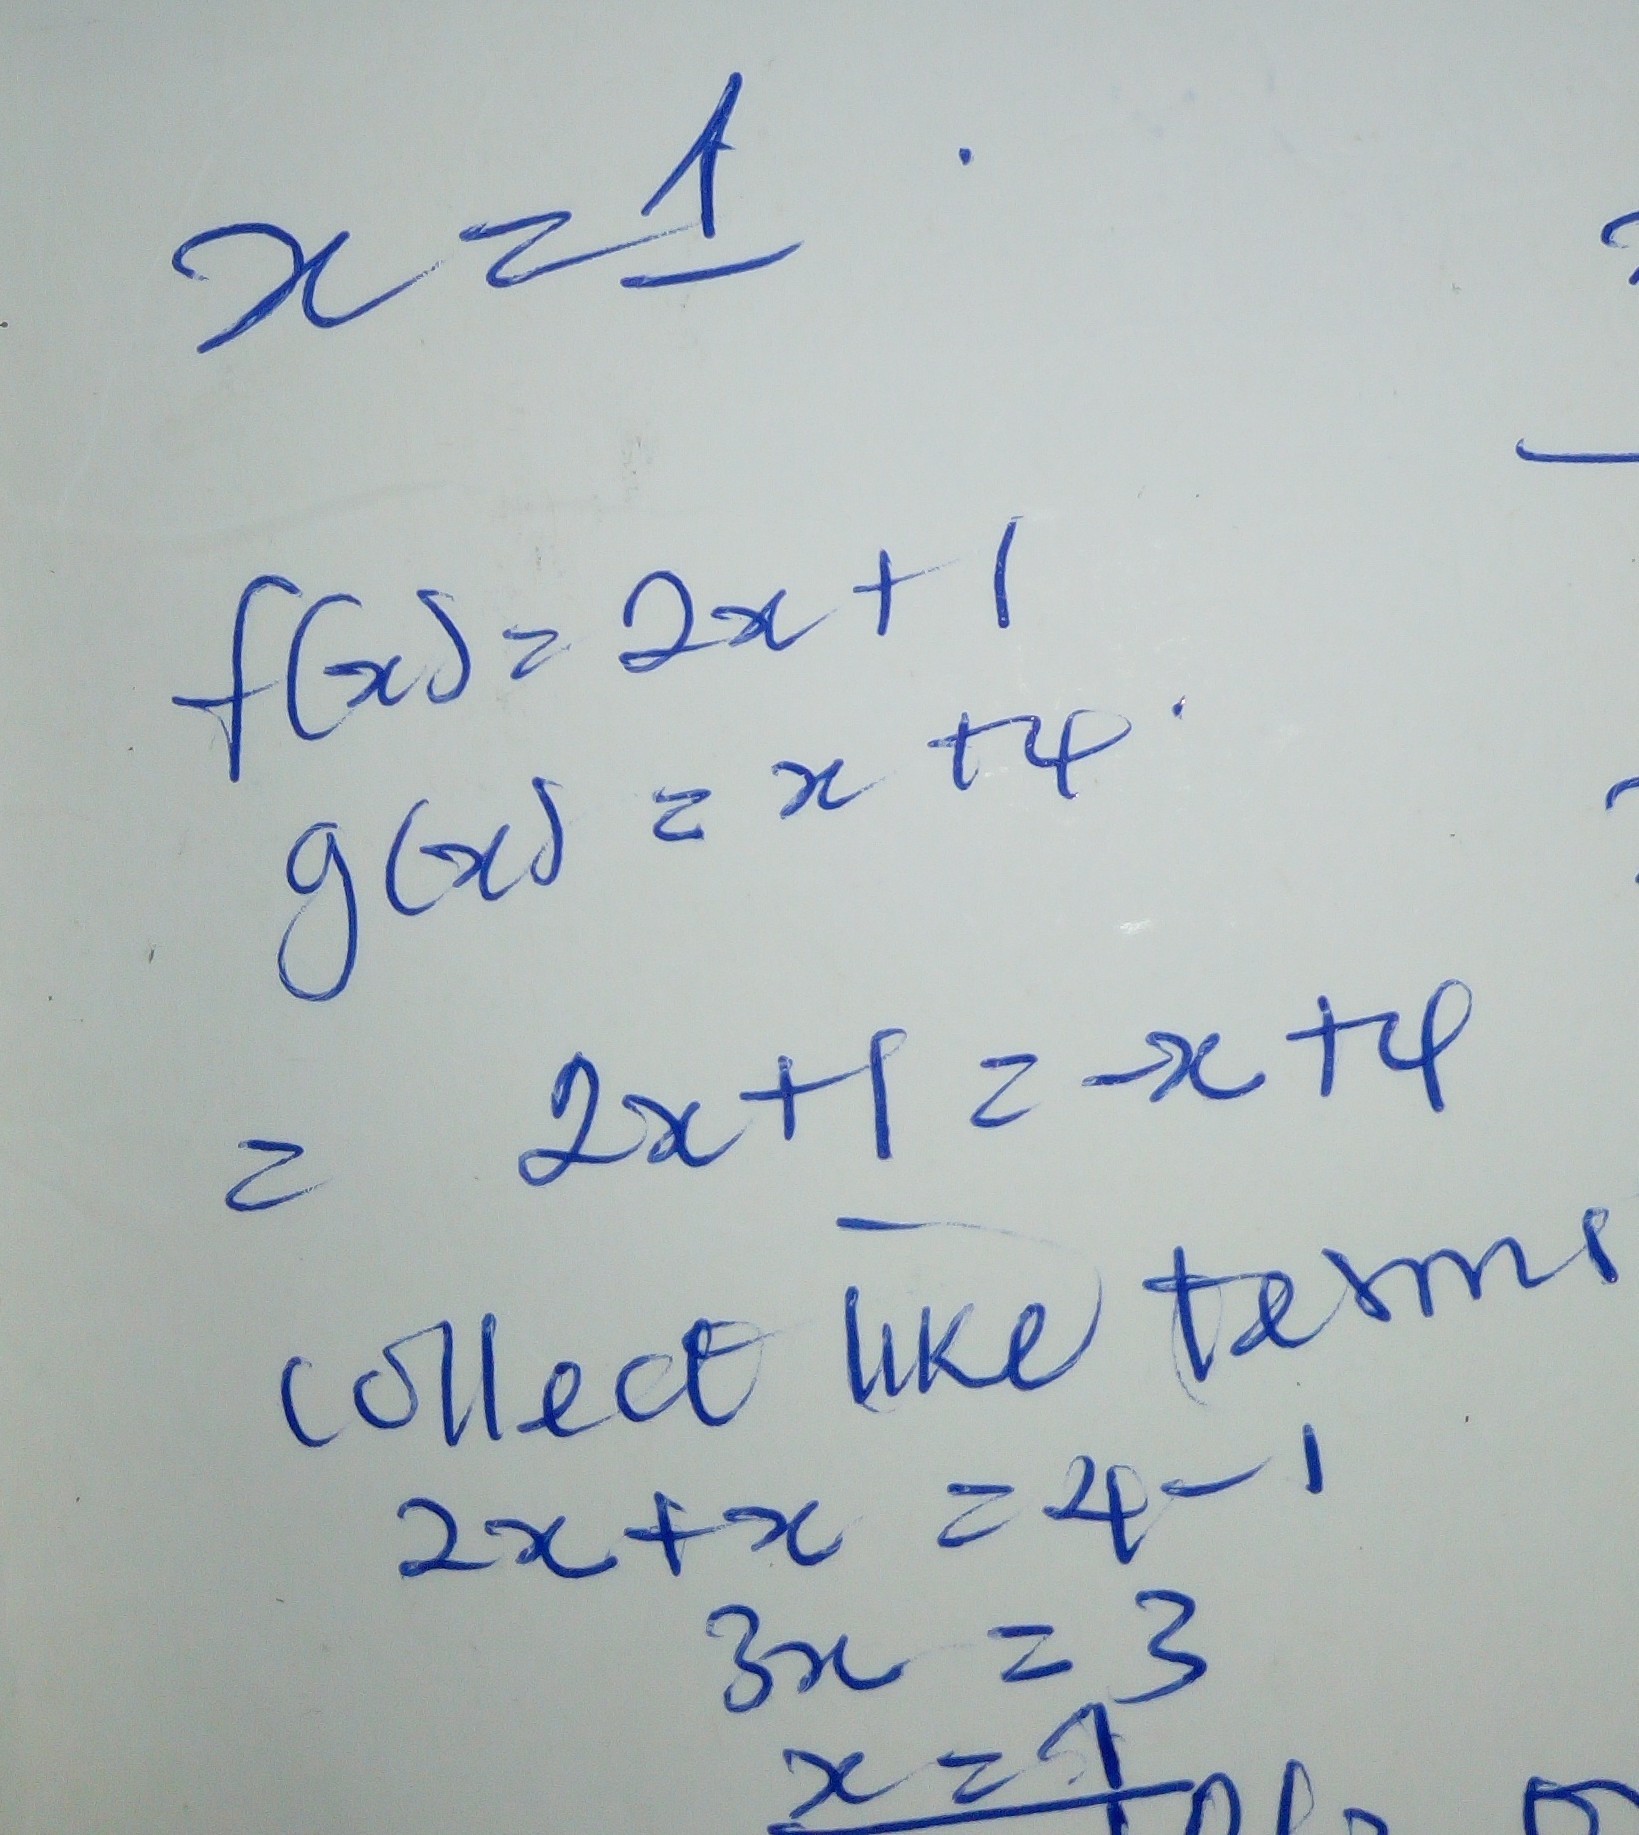 x = 1
f(x) = 2x + 1
g(x) = x + 4
= 2x + 1 = -x + 4
collect like terms
2x + x = 4 - 1
3x = 3
x = 1